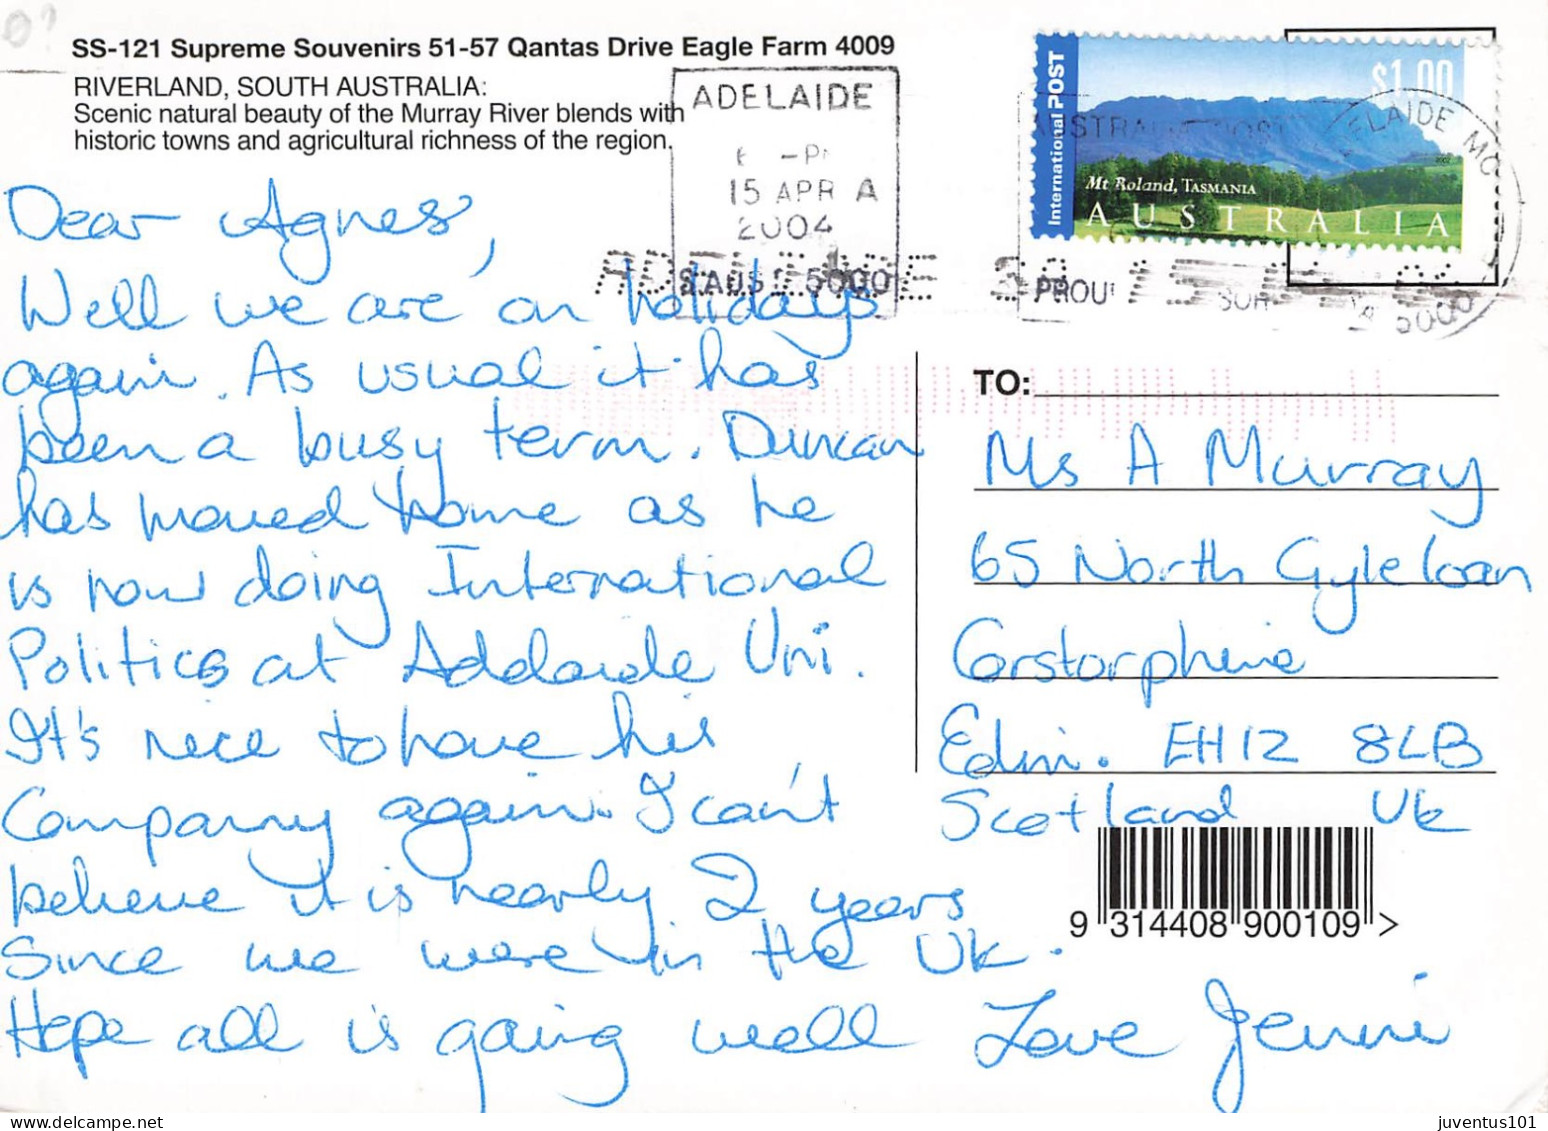 SS-121 Supreme Souvenirs 51-57 Qantas Drive Eagle Farm 4009
RIVERLAND, SOUTH AUSTRALIA:
Scenic natural beauty of the Murray River blends with
historic towns and agricultural richness of the region.
ADELAIDE
15 APR A
2004
S.AUST 5000
International POST
$1.00
Mt Roland, TASMANIA
AUSTRALIA
Dear Agnes,
Well we are on holidays
again. As usual it has
been a busy term. Duncan
has moved home as he
is now doing International
Politics at Adelaide Uni.
It's nice to have his
Company again. I can't
believe it is nearly 2 years
Since we were in the Uk.
Hope all is going well Love Jenni
TO:
Ms A Murray
65 North Gyle loan
Corstorphine
Edin. EH12 8LB
Scotland Uk
9 314408 900109 >
juventus101